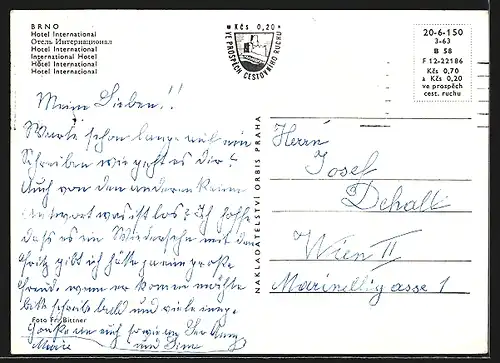 BRNO
Hotel International
Отель Интернационал
Hotel International
International Hotel
Hôtel International
Hotel International
Kčs 0,20
VE PROSPĚCH CESTOVNÍHO RUCHU
20-6-150
3-63
B 58
F 12-22186
Kčs 0,70
a Kčs 0,20
ve prospěch
cest. ruchu
Meine Lieben!!
Warte schon lange auf ein
Schreiben wie geht es dir?
Auch von den anderen keine
Antwort was ist los? Ich hoffe
dass es ein Wiedersehn mit den
Fritz gibt ich hätte große
Freud, wenn er kommen möchte
bitte schreib bald und viele
Foto Fr. Bittner
auch
und
NAKLADATELSTVÍ ORBIS PRAHA
Herrn
Josef
Dehall
Wien II
Marinelligasse 1